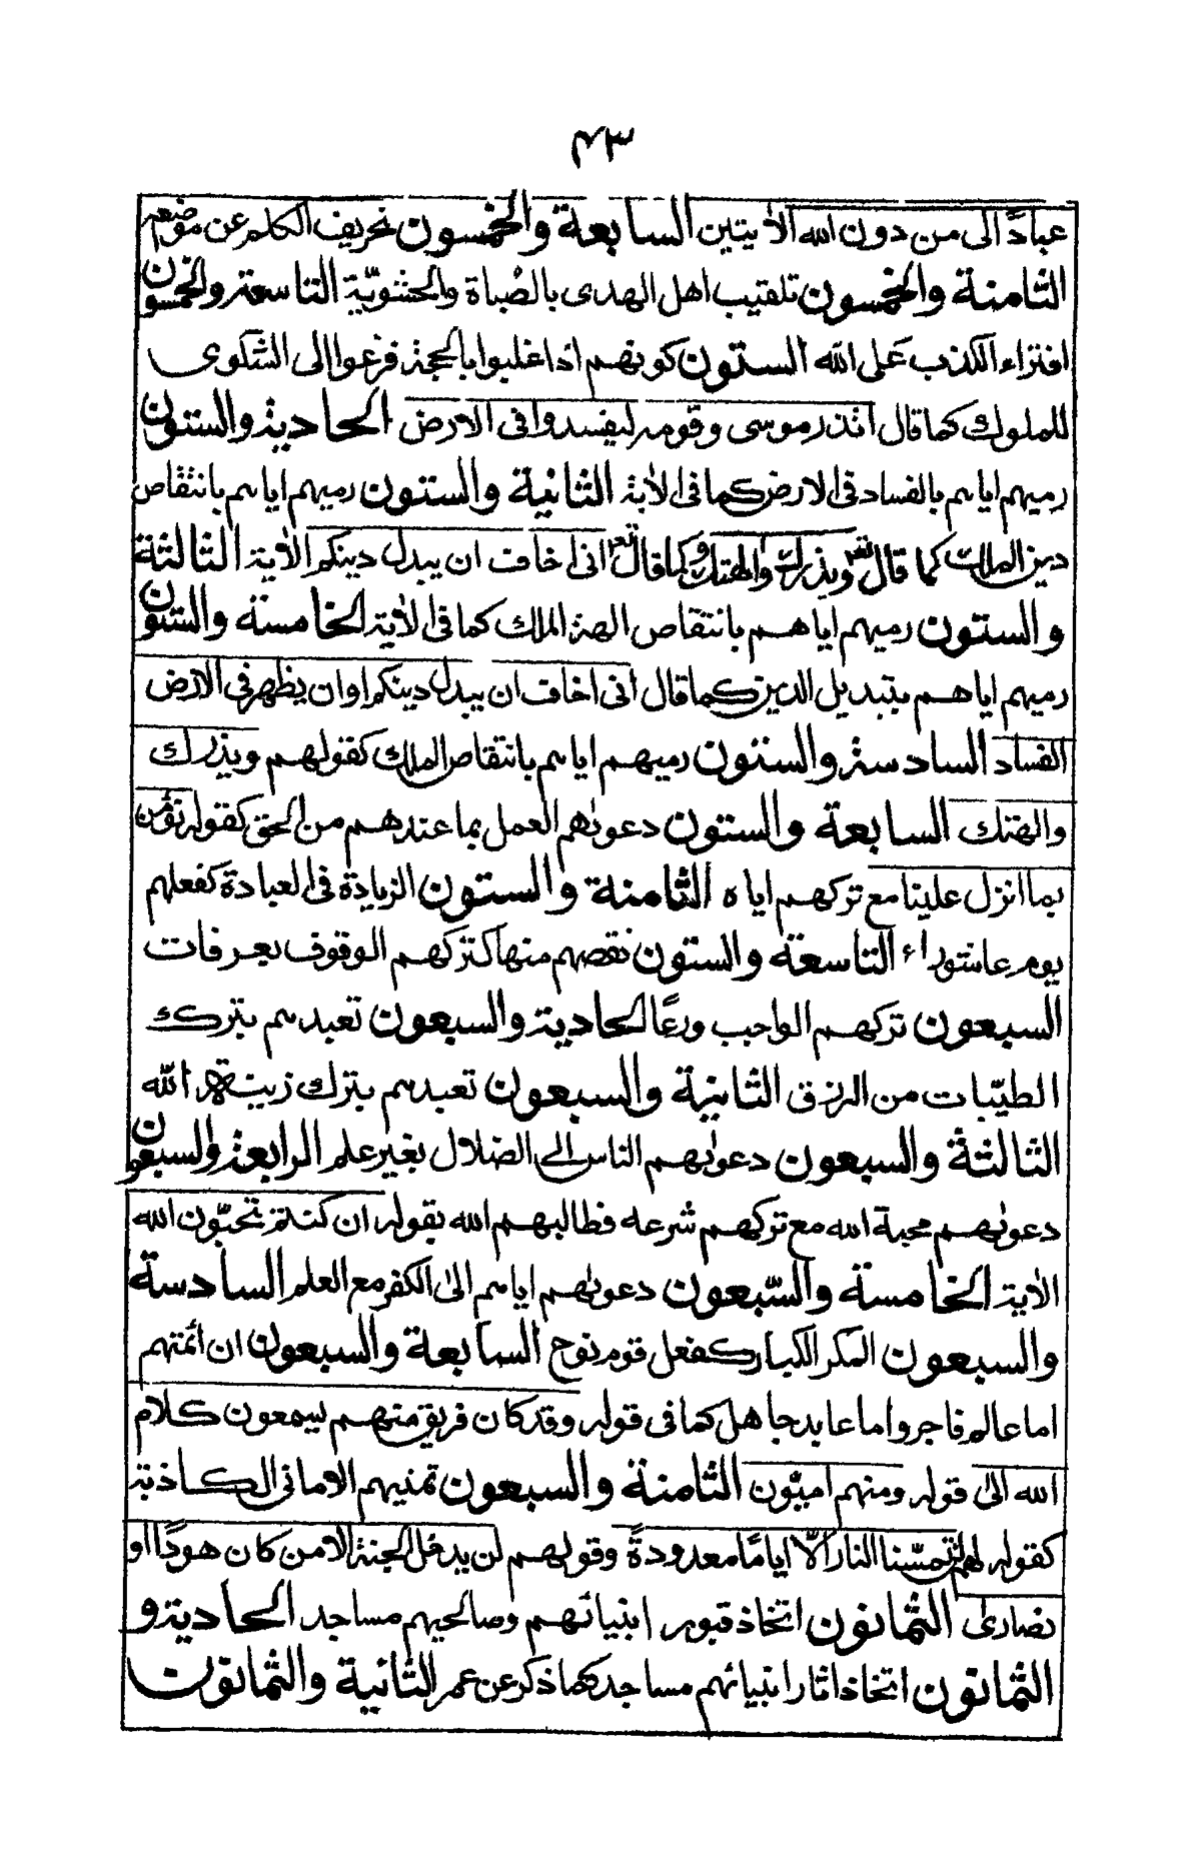 ۴۳
عبادًا لى من دون الله الأيتين السابعة والخمسون تحريف الكلم عن مواضعه
الثامنة والخمسون تلقيب اهل الهدى بالصُباة والحشويّة التاسعة والخمسون
افتراء الكذب على الله الستون كونهم اذا غلبوا بالحجة فزعوا الى الشكوى
للملوك كما قال اتذر موسى وقومه ليفسدوا فى الارض الحادية والستون
رميهم اياهم بالفساد فى الارض كما فى الأية الثانية والستون رميهم اياهم بانتقاص
دين الملك كما قال تعـ ويذرك والهتك وكما قال تعـ انى اخاف ان يبدل دينكم الأية الثالثة
والستون رميهم اياهم بانتقاص الهة الملك كما فى الأية الخامسة والستون
رميهم اياهم بتبديل الدين كما قال انى اخاف ان يبدل دينكم اوان يظهر فى الارض
الفساد السادسة والستون رميهم اياهم بانتقاص الملك كقولهم ويذرك
والهتك السابعة والستون دعوٰهم العمل بما عندهم من الحق كقوله نؤمن
بما انزل علينا مع تركهم اياه الثامنة والستون الزيادة فى العبادة كفعلهم
يوم عاشوراء التاسعة والستون نقصهم منها كتركهم الوقوف بعرفات
السبعون تركهم الواجب ورعًا الحادية والسبعون تعبدهم بترك
الطيّبات من الرزق الثانية والسبعون تعبدهم بترك زينة الله
الثالثة والسبعون دعوٰهم الناس الى الضلال بغير علم الرابعة والسبعون
دعوٰهم محبة الله مع تركهم شرعه فطالبهم الله بقوله ان كنتم تحبّون الله
الأية الخامسة والسّبعون دعوٰهم اياهم الى الكفر مع العلم السادسة
والسبعون المكر الكبار كفعل قوم نوح السابعة والسبعون ان ائمتهم
اما عالم فاجر واما عابد جاهل كما فى قوله وقد كان فريق منهم يسمعون كلام
الله الى قوله ومنهم اميّون الثامنة والسبعون تمنيهم الامانى الكاذبة
كقوله لهم لن تمسّنا النار الّا ايامًا معدودةً وقولهم لن يدخل الجنة الا من كان هودًا او
نصارىٰ الثمانون اتخاذ قبور انبيائهم وصالحيهم مساجد الحادية و
الثمانون اتخاذ اثار انبيائهم مساجد كما ذكر عن عمر الثانية والثمانون